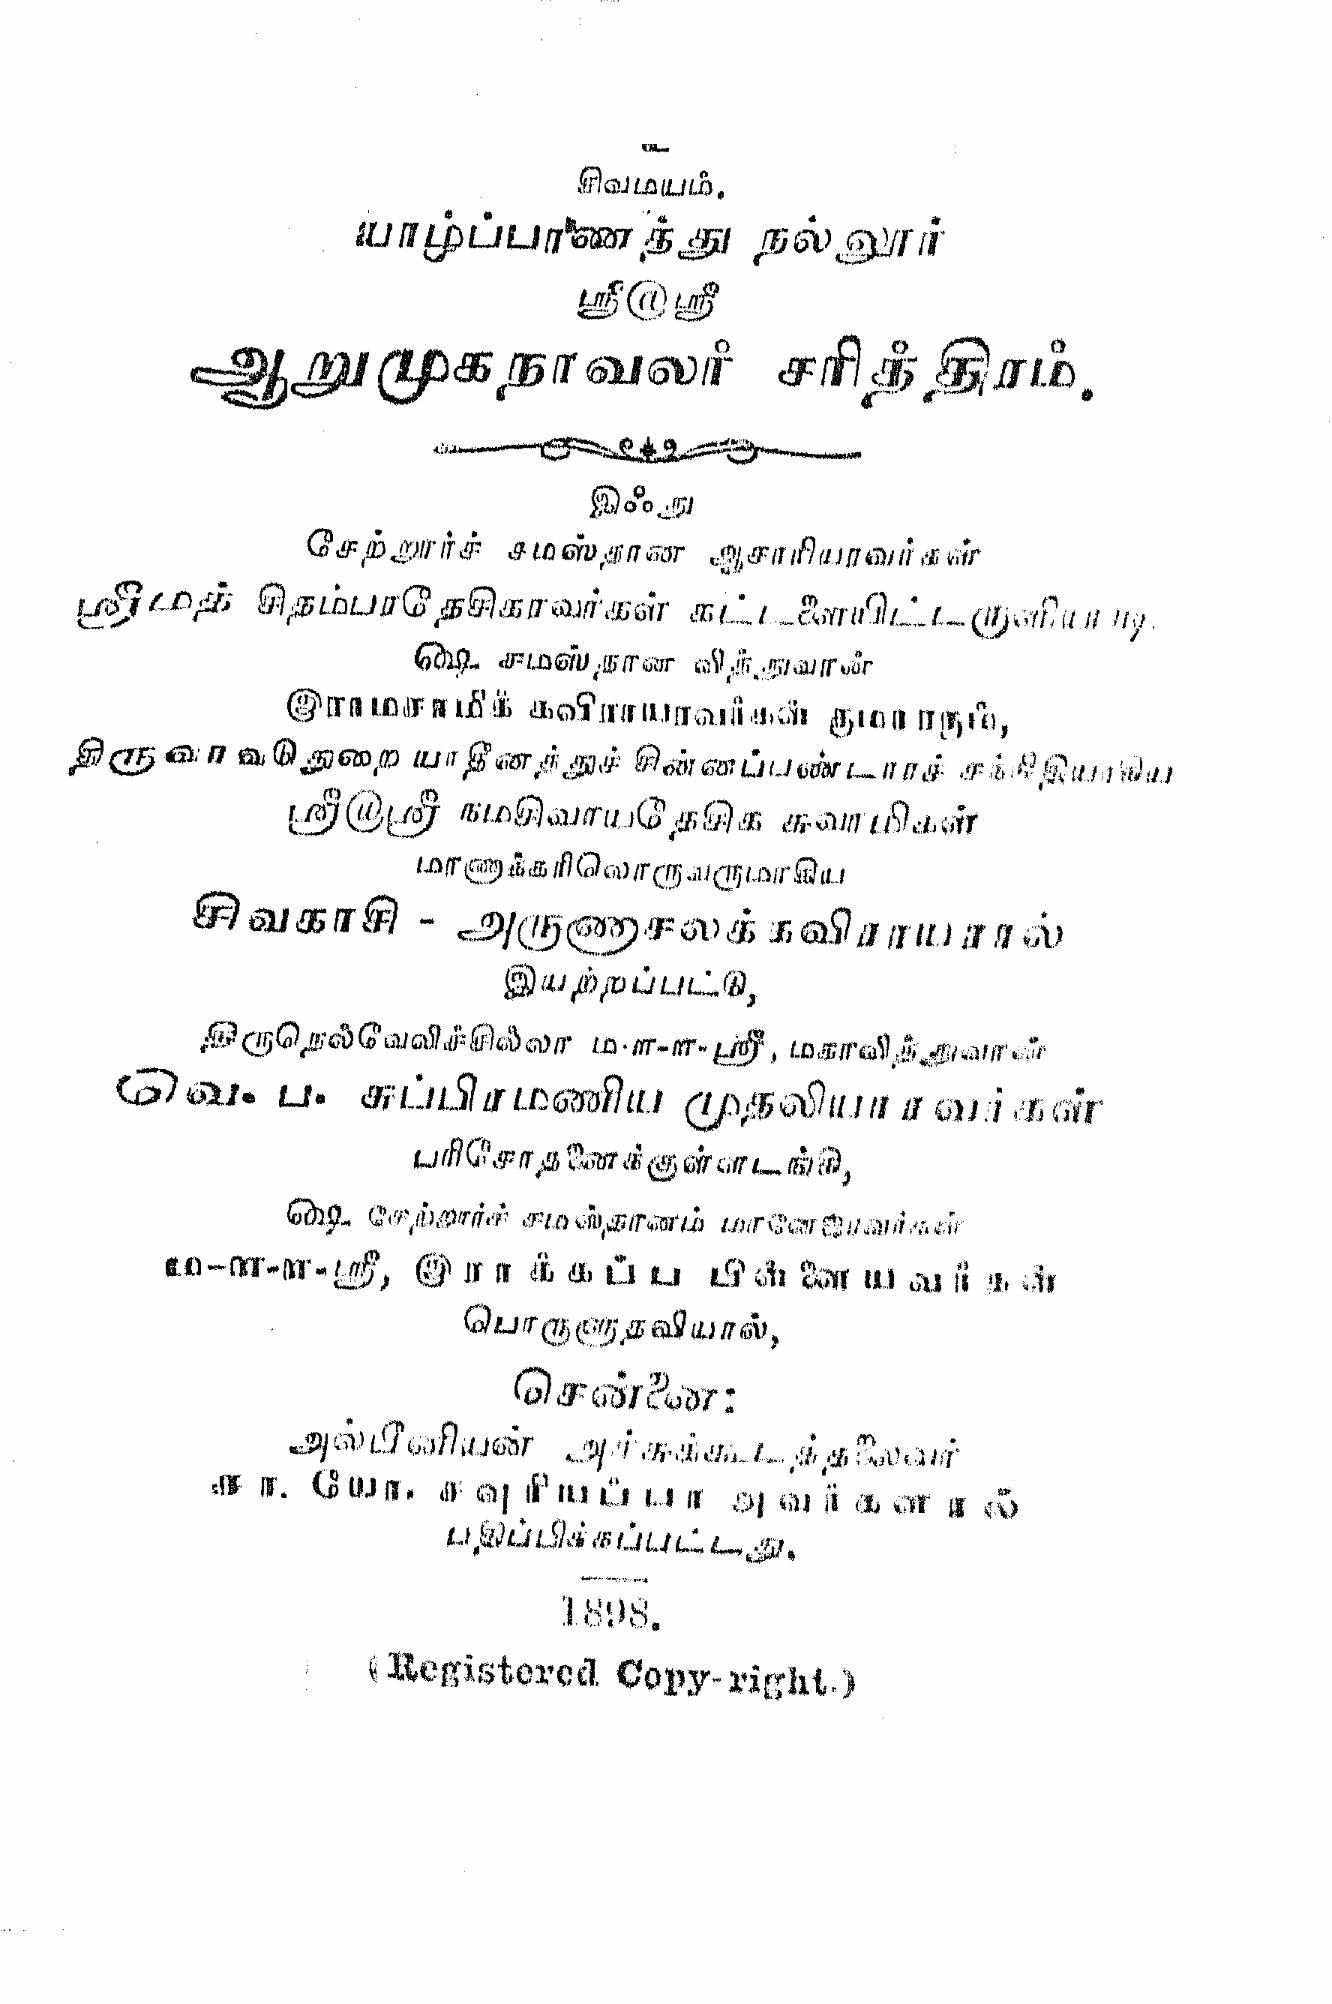 உ
சிவமயம்.
யாழ்ப்பாணத்து நல்லூர்
ஸ்ரீலஸ்ரீ
ஆறுமுகநாவலர் சரித்திரம்.
இஃது
சேற்றூர்ச் சமஸ்தான ஆசாரியாவர்கள்
ஸ்ரீமத் சிதம்பரதேசிகரவர்கள் கட்டளையிட்டருளியபடி
௸ சமஸ்தான வித்துவான்
இராமசாமிக் கவிராயரவர்கள் குமாரரும்,
திருவாவடுதுறை யாதீனத்துச் சின்னப்பண்டாரச் சந்நிதியாகிய
ஸ்ரீலஸ்ரீ நமசிவாயதேசிக சுவாமிகள்
மாணாக்கரிலொருவருமாகிய
சிவகாசி - அருணாசலக்கவிராயரால்
இயற்றப்பட்டு,
திருநெல்வேலிச்சில்லா ம-ள-ள-ஸ்ரீ, மகாவித்துவான்
வெ. ப. சுப்பிரமணிய முதலியாரவர்கள்
பரிசோதனைக்குள்ளடங்கி,
௸ சேற்றூர்ச் சமஸ்தானம் மானேஜரவர்கள்
ம-ள-ள-ஸ்ரீ, இராக்கப்ப பிள்ளையவர்கள்
பொருளுதவியால்,
சென்னை:
அல்பீனியன் அச்சுக்கூடத்தலைவர்
சா. யோ. சவுரியப்பா அவர்களால்
பதிப்பிக்கப்பட்டது.
1898.
(Registered Copy-right.)